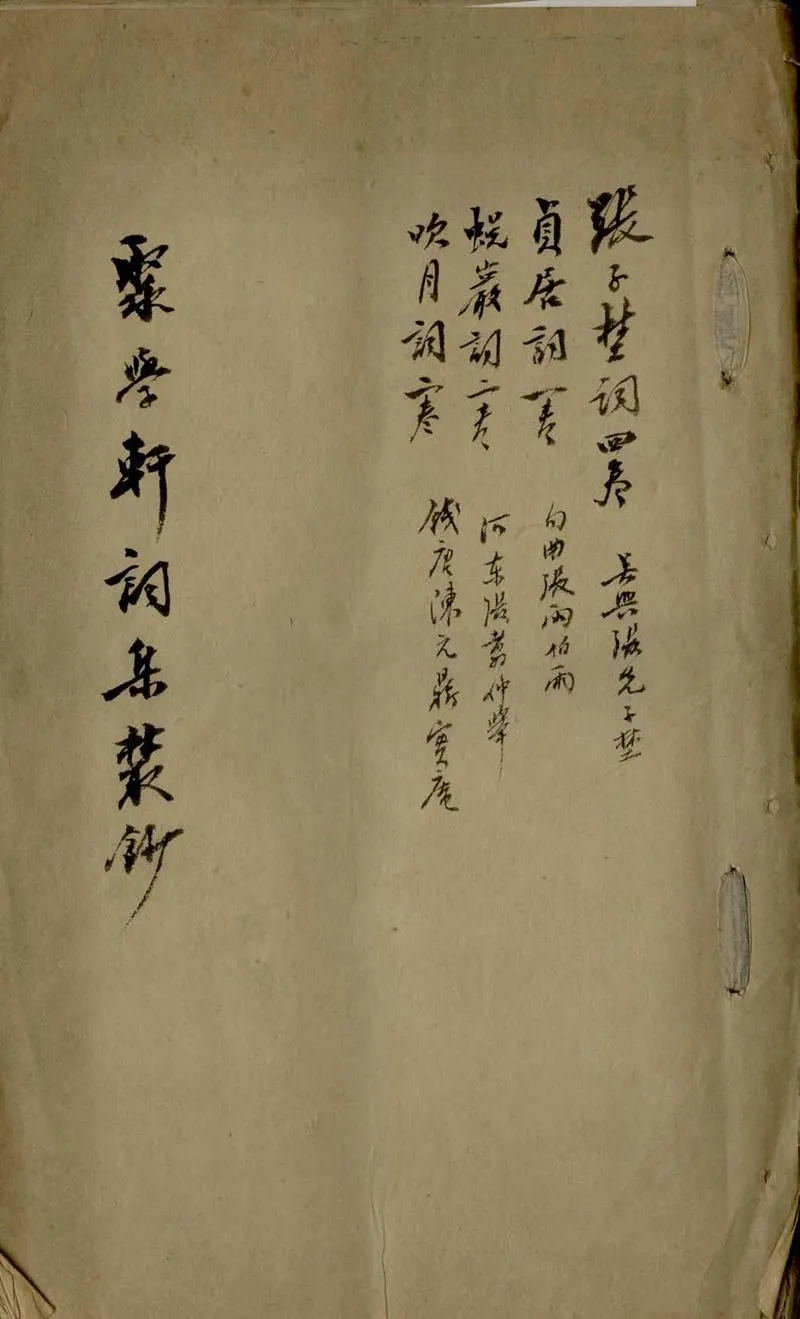 張子埜詞四卷 吳興張先子埜
貞居詞一卷 句曲張雨伯雨
蛻巖詞二卷 河东張翥仲舉
吹月詞一卷 錢唐陳元鼎實庵
聚學軒詞集叢鈔